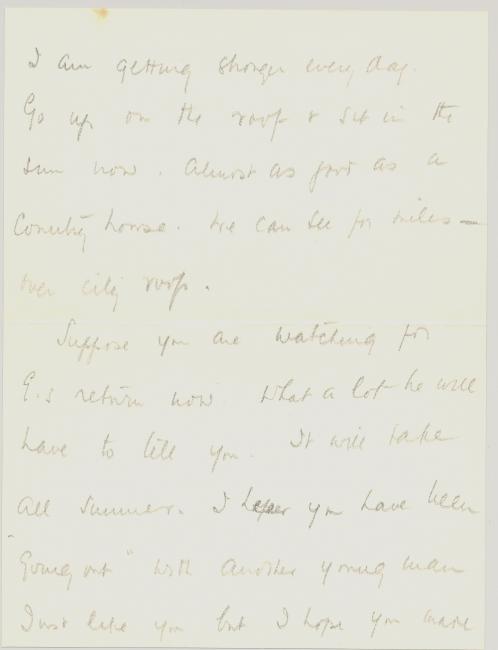 I am getting stronger every day.
Go up on the roof & sit in the
sun now. Almost as good as a
Country house. We can see for miles —
over city roofs.
Suppose you are watching for
G.s return now. What a lot he will
have to tell you. It will take
all summer. I hear you have been
"Going out" with another young man
Just like you but I hope you